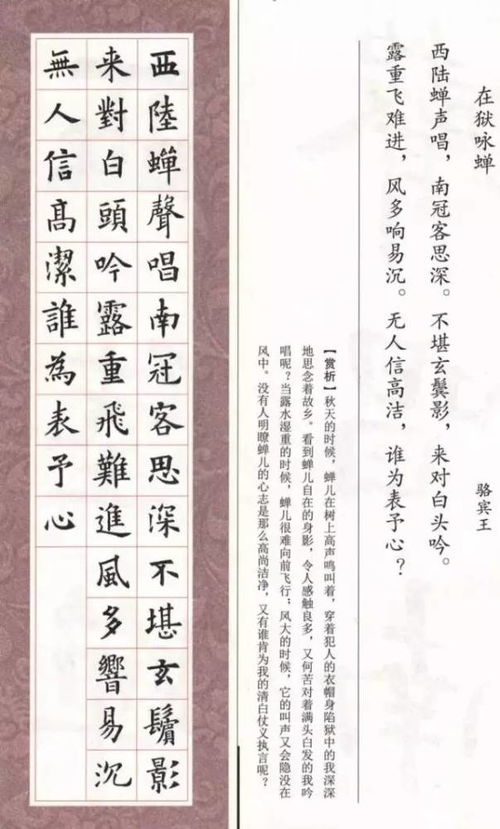 在狱咏蝉
骆宾王
西陆蝉声唱，南冠客思深。不堪玄鬓影，来对白头吟。
露重飞难进，风多响易沉。无人信高洁，谁为表予心？
【赏析】秋天的时候，蝉儿在树上高声鸣叫着，穿着犯人的衣帽身陷狱中的我深深
地思念着故乡。看到蝉儿自在的身影，令人感触良多，又何苦对着满头白发的我吟
唱呢？当露水湿重的时候，蝉儿很难向前飞行；风大的时候，它的叫声又会隐没在
风中。没有人明瞭蝉儿的心志是那么高尚洁净，又有谁肯为我的清白仗义执言呢？
西陸蟬聲唱南冠客思深不堪玄鬢影
来對白頭吟露重飛難進風多響易沉
無人信髙潔誰為表予心